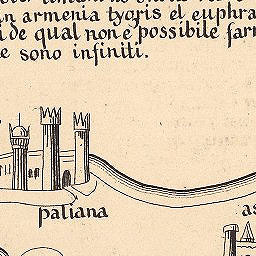 in armenia tygris el euphra
i de qual non e possibile farn
e sono infiniti.
paliana
as